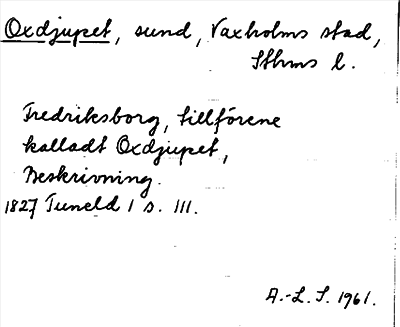 Oxdjupet, sund, Vaxholms stad,
Sthms l.
Fredriksborg, tillförene
kalladt Oxdjupet,
Beskrivning.
1827 Tuneld 1 s. 111.
A.-L. S. 1961.